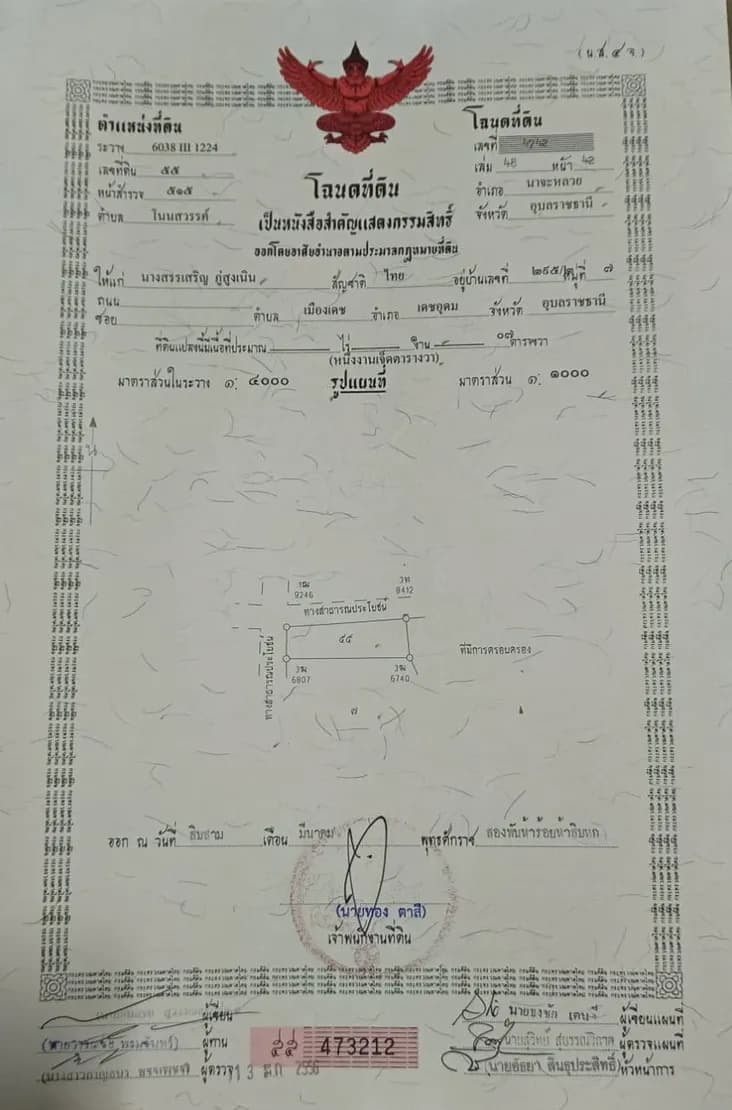 (น.ส. ๔ จ.)
ตำแหน่งที่ดิน
ระวาง 6038 III 1224
เลขที่ดิน ๕๕
หน้าสำรวจ ๕๑๕
ตำบล โนนสวรรค์
โฉนดที่ดิน
เลขที่ 4742
เล่ม 48 หน้า 42
อำเภอ นาจะหลวย
จังหวัด อุบลราชธานี
โฉนดที่ดิน
เป็นหนังสือสำคัญแสดงกรรมสิทธิ์
ออกโดยอาศัยอำนาจตามประมวลกฎหมายที่ดิน
ให้แก่ นางสรรเสริญ อู่สูงเนิน สัญชาติ ไทย อยู่บ้านเลขที่ หมู่ที่ ๗
ถนน
ซอย ตำบล เมืองเดช อำเภอ เดชอุดม จังหวัด อุบลราชธานี
ที่ดินแปลงนี้มีเนื้อที่ประมาณ ไร่ งาน ๐๗ ตารางวา
(หนึ่งงานเจ็ดตารางวา)
มาตราส่วนในระวาง ๑: ๔๐๐๐ รูปแผนที่ มาตราส่วน ๑: ๑๐๐๐
น
9246
8412
ทางสาธารณประโยชน์
๕๕
ที่มีการครอบครอง
ทางสาธารณประโยชน์
6807
6740
๗
ออก ณ วันที่ สิบสาม เดือน มีนาคม พุทธศักราช สองพันห้าร้อยห้าสิบหก
(นายทอง ตาสี)
เจ้าพนักงานที่ดิน
ผู้เขียน
ผู้ทาน
ผู้ตรวจ 13 มี.ค. 2556
๕๕ 473212
ผู้เขียนแผนที่
นายสุวิทย์ ผู้ตรวจแผนที่
สินธุประสิทธิ์) หัวหน้าการ